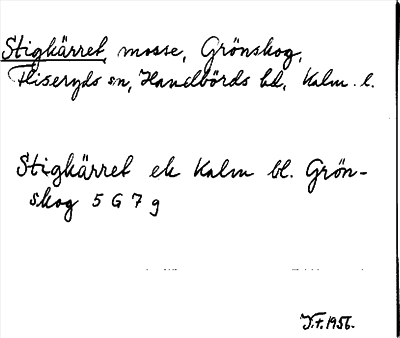 Stigkärret, mosse, Grönskog,
Fliseryds sn, Handbörds hd, Kalm. l.
Stigkärret ek Kalm bl. Grön-
skog 5 G 7 g
J.t. 1956.